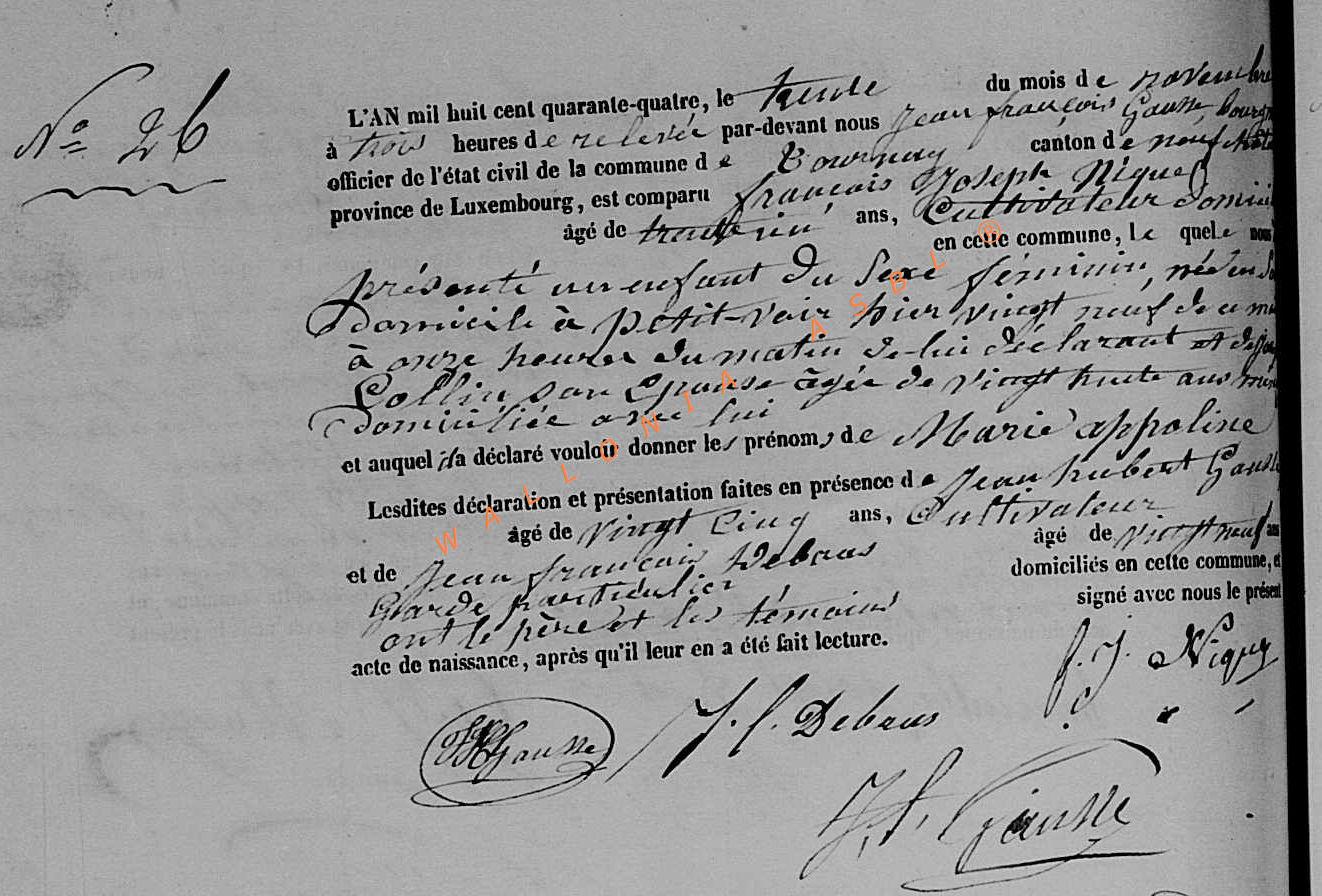 N° 26
L'AN mil huit cent quarante-quatre, le trente du mois de novembre
à trois heures de relevée par-devant nous Jean françois Gausse Bourgm
officier de l'état civil de la commune de Tournay canton de neufchâte
province de Luxembourg, est comparu françois Joseph Niquet
âgé de ans, Cultivateur domicil
en cette commune, le quele nous
présenté un enfant du Sexe féminin, née en so
domicile à petit-voir hier vingt neuf de ce m
à onze heures du matin de lui déclarant et de
Collin son Epouse âgée de vingt huit ans
domiciliée avec lui
et auquel il a déclaré vouloir donner les prénoms de Marie appoline
Lesdites déclaration et présentation faites en présence de Jean hubert Gausse
âgé de vingt Cinq ans, Cultivateur
et de Jean françois Debras âgé de vingt neuf ans
Garde particulier domiciliés en cette commune, et
ont le père et les témoins signé avec nous le présent
acte de naissance, après qu'il leur en a été fait lecture.
f. J. Niquet
JH Gausse
J. f. Debras
J. f. Gausse
WALLONIA ASBL ®